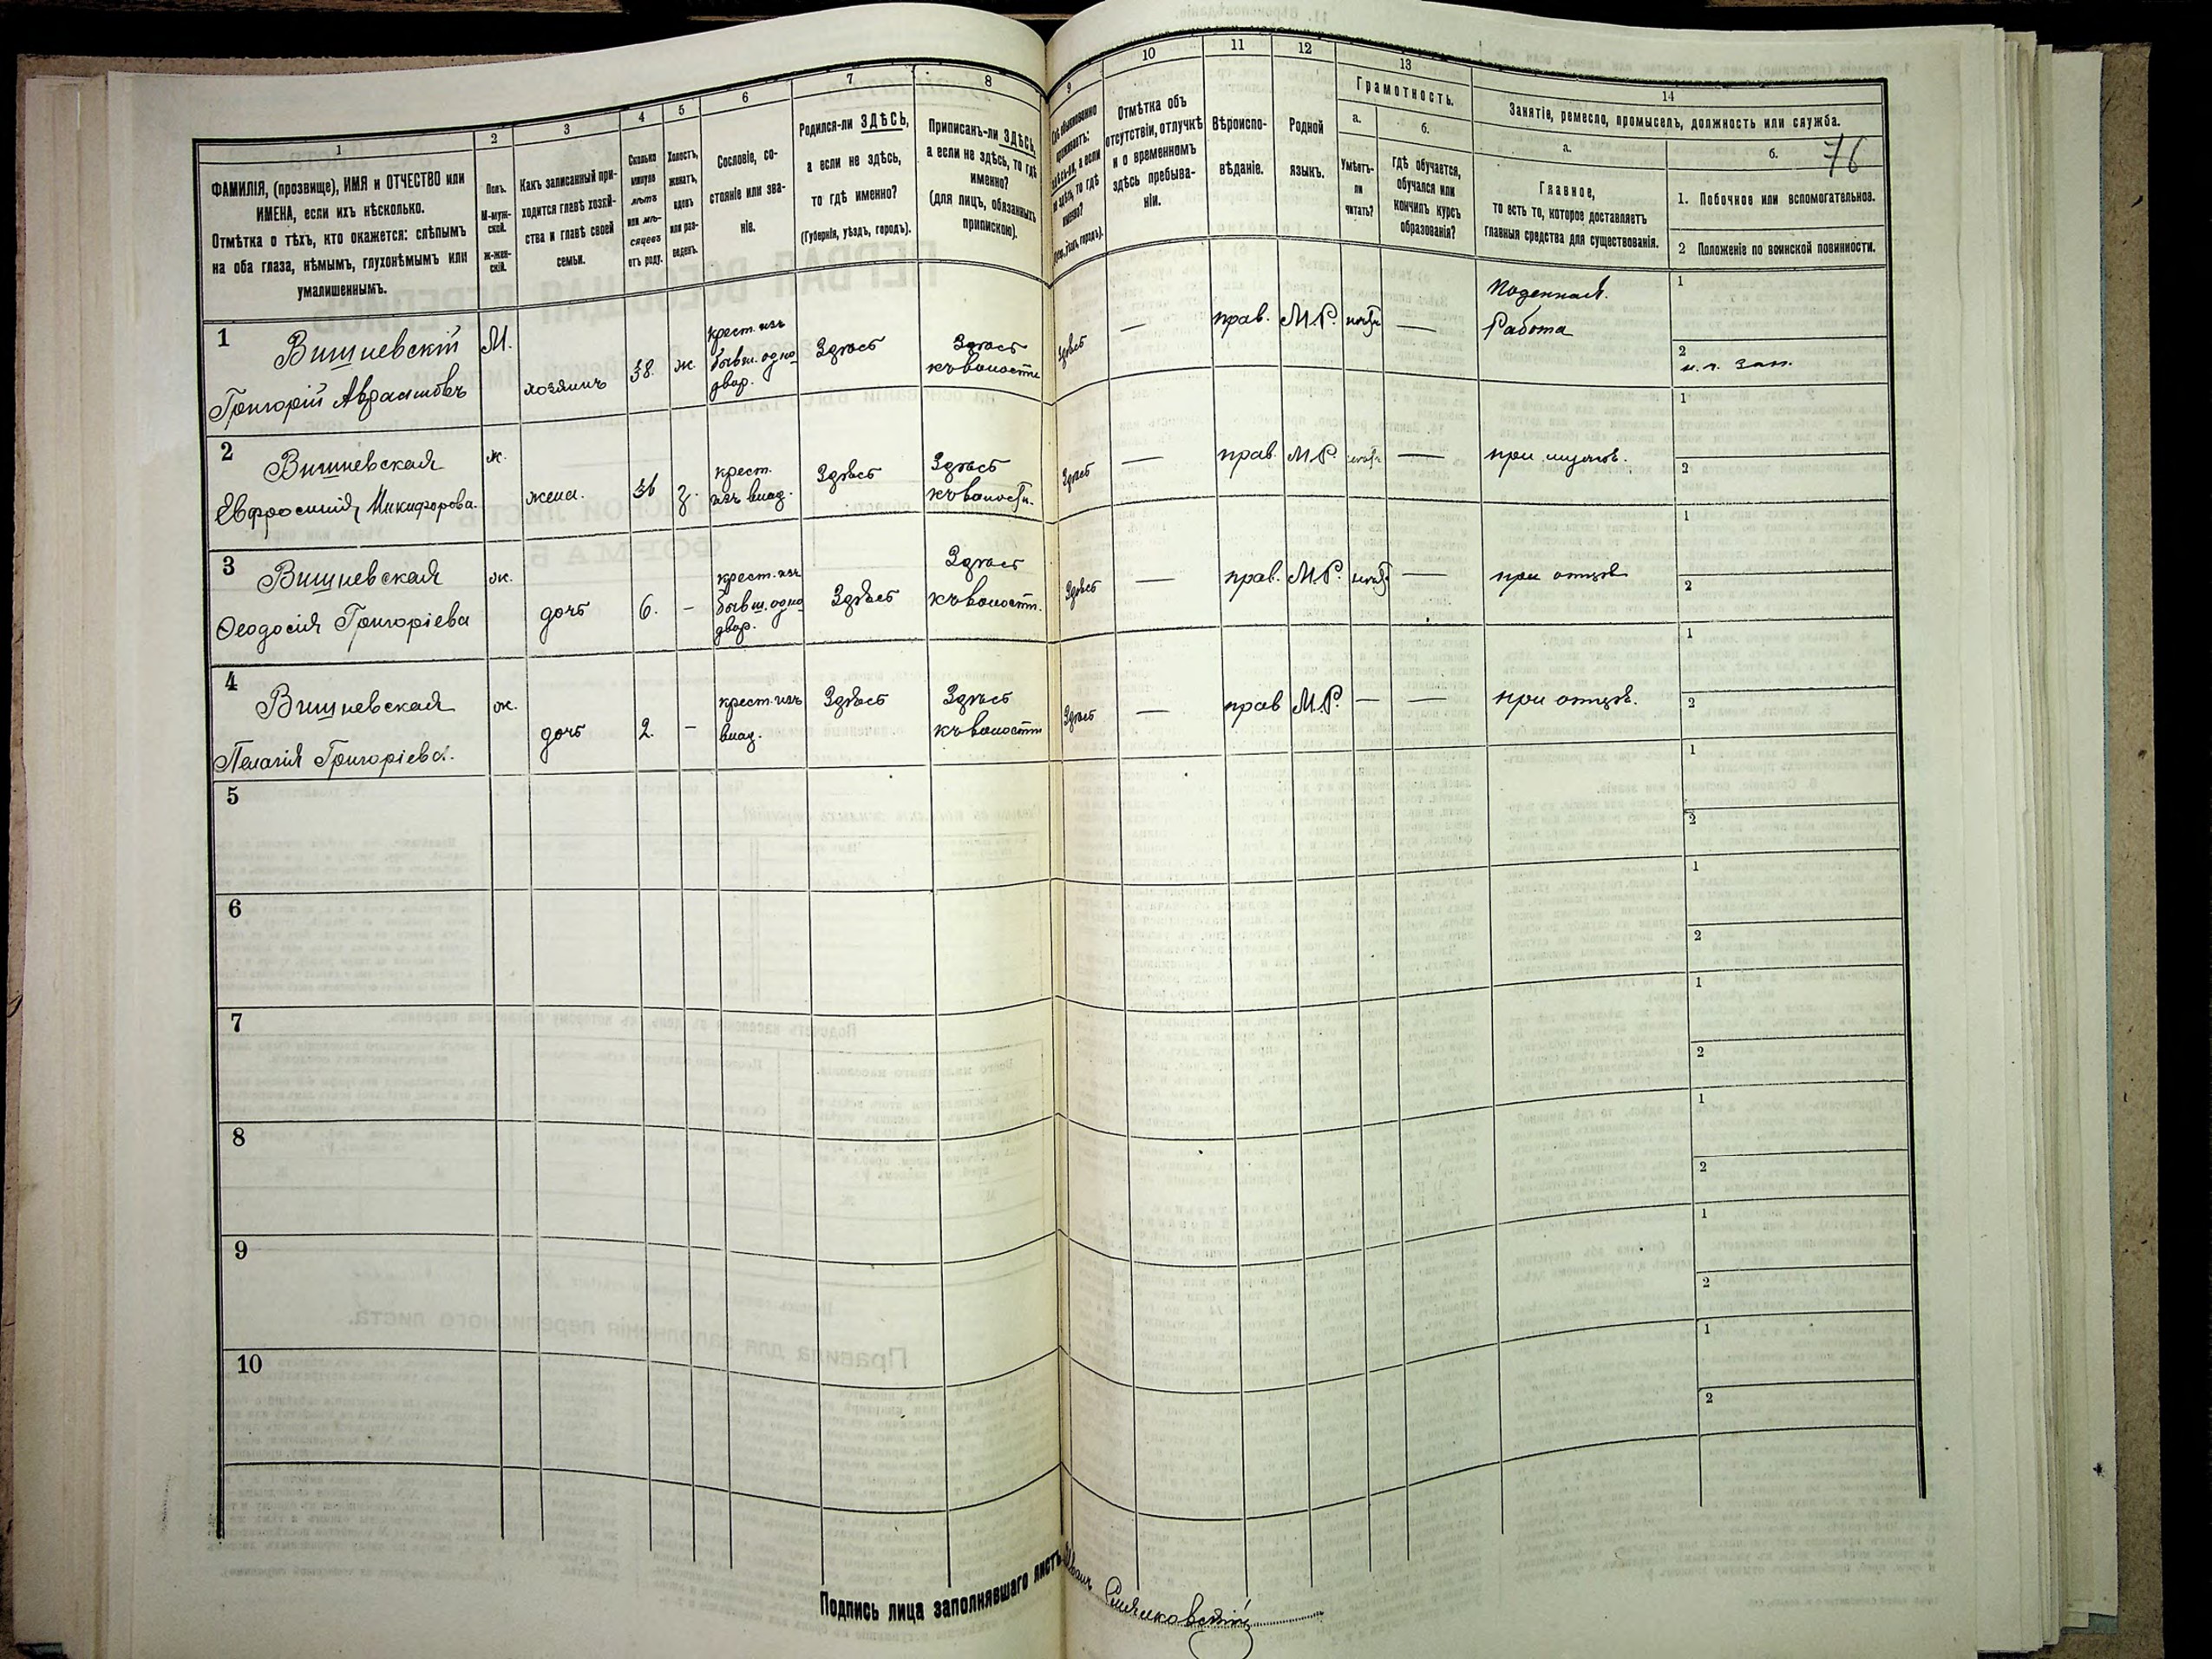 1 2 3 4 5 6 7 8
ФАМИЛІЯ, (прозвище), ИМЯ и ОТЧЕСТВО или
ИМЕНА, если ихъ нѣсколько.
Отмѣтка о тѣхъ, кто окажется: слѣпымъ
на оба глаза, нѣмымъ, глухонѣмымъ или
умалишеннымъ.
Полъ.
М-муж-
ской.
ж-жен-
скій.
Какъ записанный при-
ходится главѣ хозяй-
ства и главѣ своей
семьи.
Сколько
минуло
лѣтъ
или мѣ-
сяцевъ
отъ роду.
Холостъ,
женатъ,
вдовъ
или раз-
веденъ.
Сословіе, со-
стояніе или зва-
ніе.
Родился-ли ЗДѢСЬ,
а если не здѣсь,
то гдѣ именно?
(Губернія, уѣздъ, городъ).
Приписанъ-ли ЗДѢСЬ,
а если не здѣсь, то гдѣ
именно?
(для лицъ, обязанныхъ
припискою).
9 10 11 12 13 14
Гдѣ обыкновенно
проживаетъ:
здѣсь-ли, а если
не здѣсь, то гдѣ
именно?
Отмѣтка объ
отсутствіи, отлучкѣ
и о временномъ
здѣсь пребыва-
ніи.
Вѣроиспо-
вѣданіе.
Родной
языкъ.
Грамотность.
а.
Умѣетъ-
ли
читать?
б.
гдѣ обучается,
обучался или
кончилъ курсъ
образованія?
Занятіе, ремесло, промыселъ, должность или служба.
а.
Главное,
то есть то, которое доставляетъ
главныя средства для существованія.
б. 76
1. Побочное или вспомогательное.
2 Положеніе по воинской повинности.
1 Вишневскій
Григорій Авраамовъ
М.
хозяинъ
38.
ж.
крест. изъ
бывш. одно
двор.
Здѣсь
Здѣсь
къ волости
Здѣсь
—
прав.
М.Р.
нѣтъ
—
Поденная.
Работа
1
2
н. г. зап.
2 Вишневская
Евфросинія Никифорова.
ж.
жена.
36
З.
крест.
изъ влад.
Здѣсь
Здѣсь
къ волости.
Здѣсь
—
прав.
М.Р.
нѣтъ
—
при мужѣ.
1
2
3 Вишневская
Ѳеодосія Григоріева
ж.
дочь
6.
–
крест. изъ
бывш. одно
двор.
Здѣсь
Здѣсь
къ волости.
Здѣсь
—
прав.
М.Р.
нѣтъ
—
при отцѣ
1
2
4 Вишневская
Пелагія Григоріева.
ж.
дочь
2.
–
крест. изъ
влад.
Здѣсь
Здѣсь
къ волости
Здѣсь
—
прав
М.Р.
—
—
при отцѣ.
1
2
5
1
2
6
1
2
7
1
2
8
1
2
9
1
2
10
1
2
Подпись лица заполнявшаго листъ